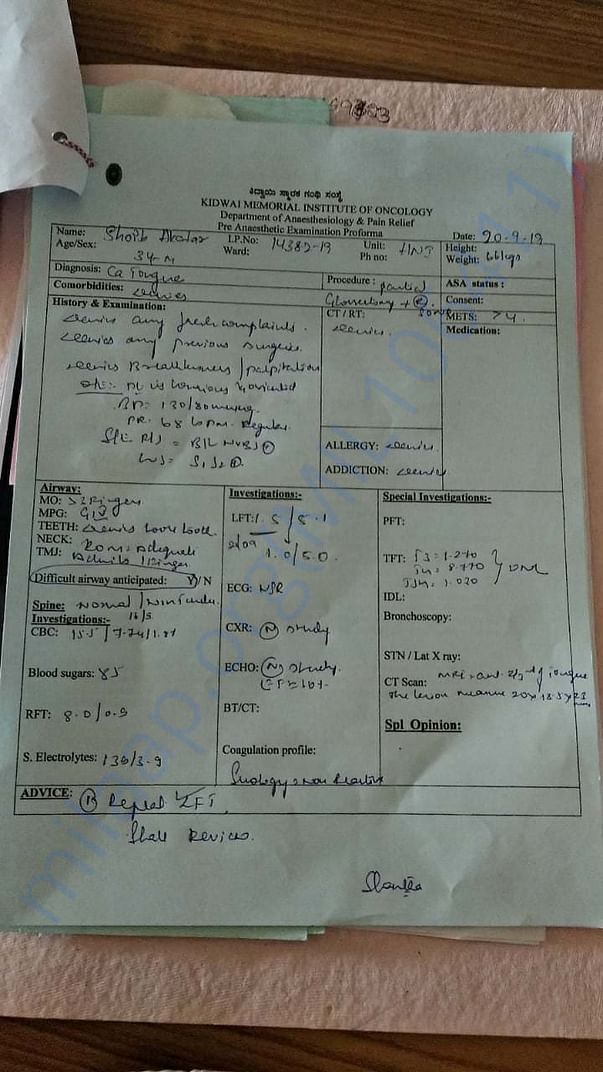 ಕಿದ್ವಾಯಿ ಸ್ಮಾರಕ ಗಂಥಿ ಸಂಸ್ಥೆ
KIDWAI MEMORIAL INSTITUTE OF ONCOLOGY
Department of Anaesthesiology & Pain Relief
Pre Anaesthetic Examination Proforma
Name: Shoib Akhtar
I.P.No: 14382-19
Unit: HNI
Date: 20-9-19
Age/Sex: 34-M
Ward:
Ph no:
Height:
Weight: 66kgs
Diagnosis: Ca Tongue
Procedure: partial
Glossectomy + (R)
ASA status :
Comorbidities: denies
Consent:
History & Examination:
CT / RT:
denies.
METS: >4.
Medication:
denies any fresh complaints.
denies any previous surgeries.
denies Breathlessness / palpitation
o/E:- pt is conscious & oriented
BP= 130/80mmHg.
PR: 68 bpm. Regular
S/E R/S = B/L NVBS
S1S2
ALLERGY: denies.
ADDICTION: denies
Airway:
MO: >3 Fingers
MPG: G
TEETH: denies loose tooth
NECK: ROM= Adequate
TMJ: Admits 1 Finger
Difficult airway anticipated: Y/N
Spine: Normal /
Investigations:-
CBC: 15.5 | 7.74 / 1.81
Blood sugars: 85
RFT: 8.0 / 0.9
S. Electrolytes: 136/3.9
Investigations:-
LFT: 1.5 / 5.1
1.0/5.0.
ECG: NSR
CXR: (N) study
ECHO: (N) study.
BT/CT:
Coagulation profile:
Serology: Non Reactive
Special Investigations:-
PFT:
TFT: T3= 1.270
T4= 8.770
TSH= 1.020
IDL:
Bronchoscopy:
STN / Lat X ray:
CT Scan: MRI: ant 2/3rd of tongue
the lesion measure 20x18.5x23
mm
Spl Opinion:
ADVICE: Repeat LFT.
Shall Review.
milaap.org